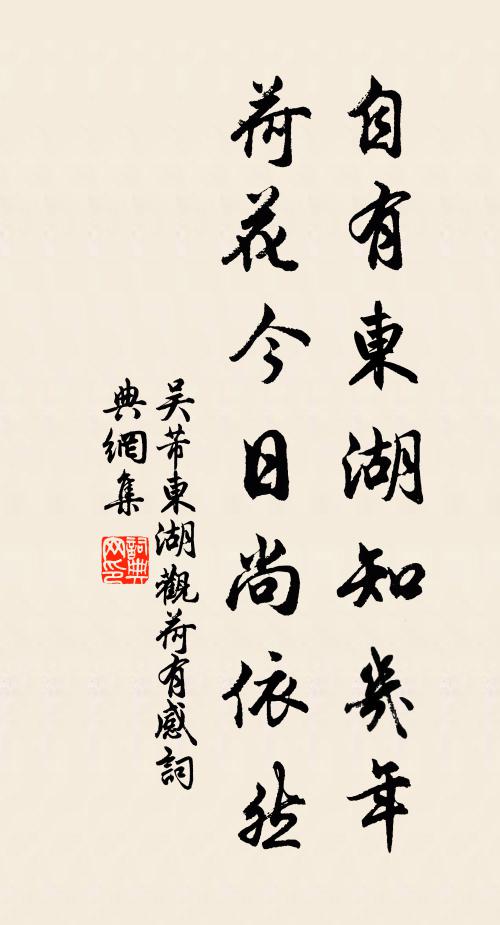 自有東湖知幾年
荷花今日尚依然
吴芾東湖觀荷有感詞
典網集
詞典網印